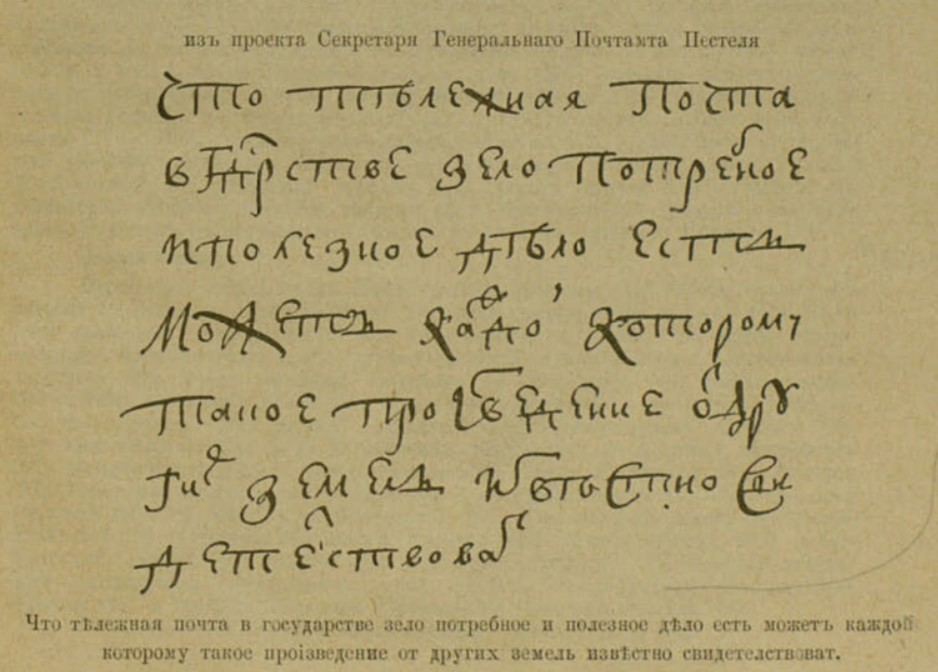 изъ проекта Секретаря Генеральнаго Почтамта Пестеля
Что тѣлежная почта
в Гдрстве зело потребное
и полезное дѣло есть
может каждо которому
такое произведение от дру
гих земель извѣстно сви
детелствоват
Что тѣлежная почта в государстве зело потребное и полезное дѣло есть можетъ каждой
которому такое проізведение от других земель извѣстно свидетелствоват.